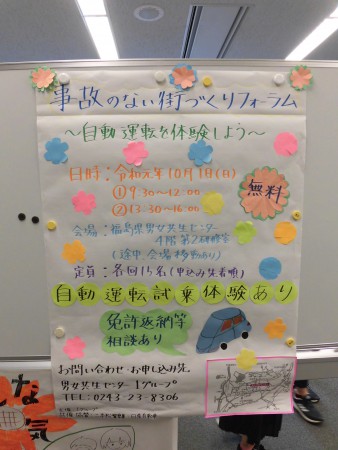 事故のない街づくりフォーラム
～自動運転を体験しよう～
日時：令和元年10月1日(日)
①9:30～12:00
②13:30～16:00
無料
会場：福島県男女共生センター
4階第2研修室
(途中、会場移動あり)
定員：各回15名(申込み先着順)
自動運転試乗体験あり
免許返納等
相談あり
お問い合わせ・お申し込み先
男女共生センター1グループ
TEL:0243-23-8306
な
気